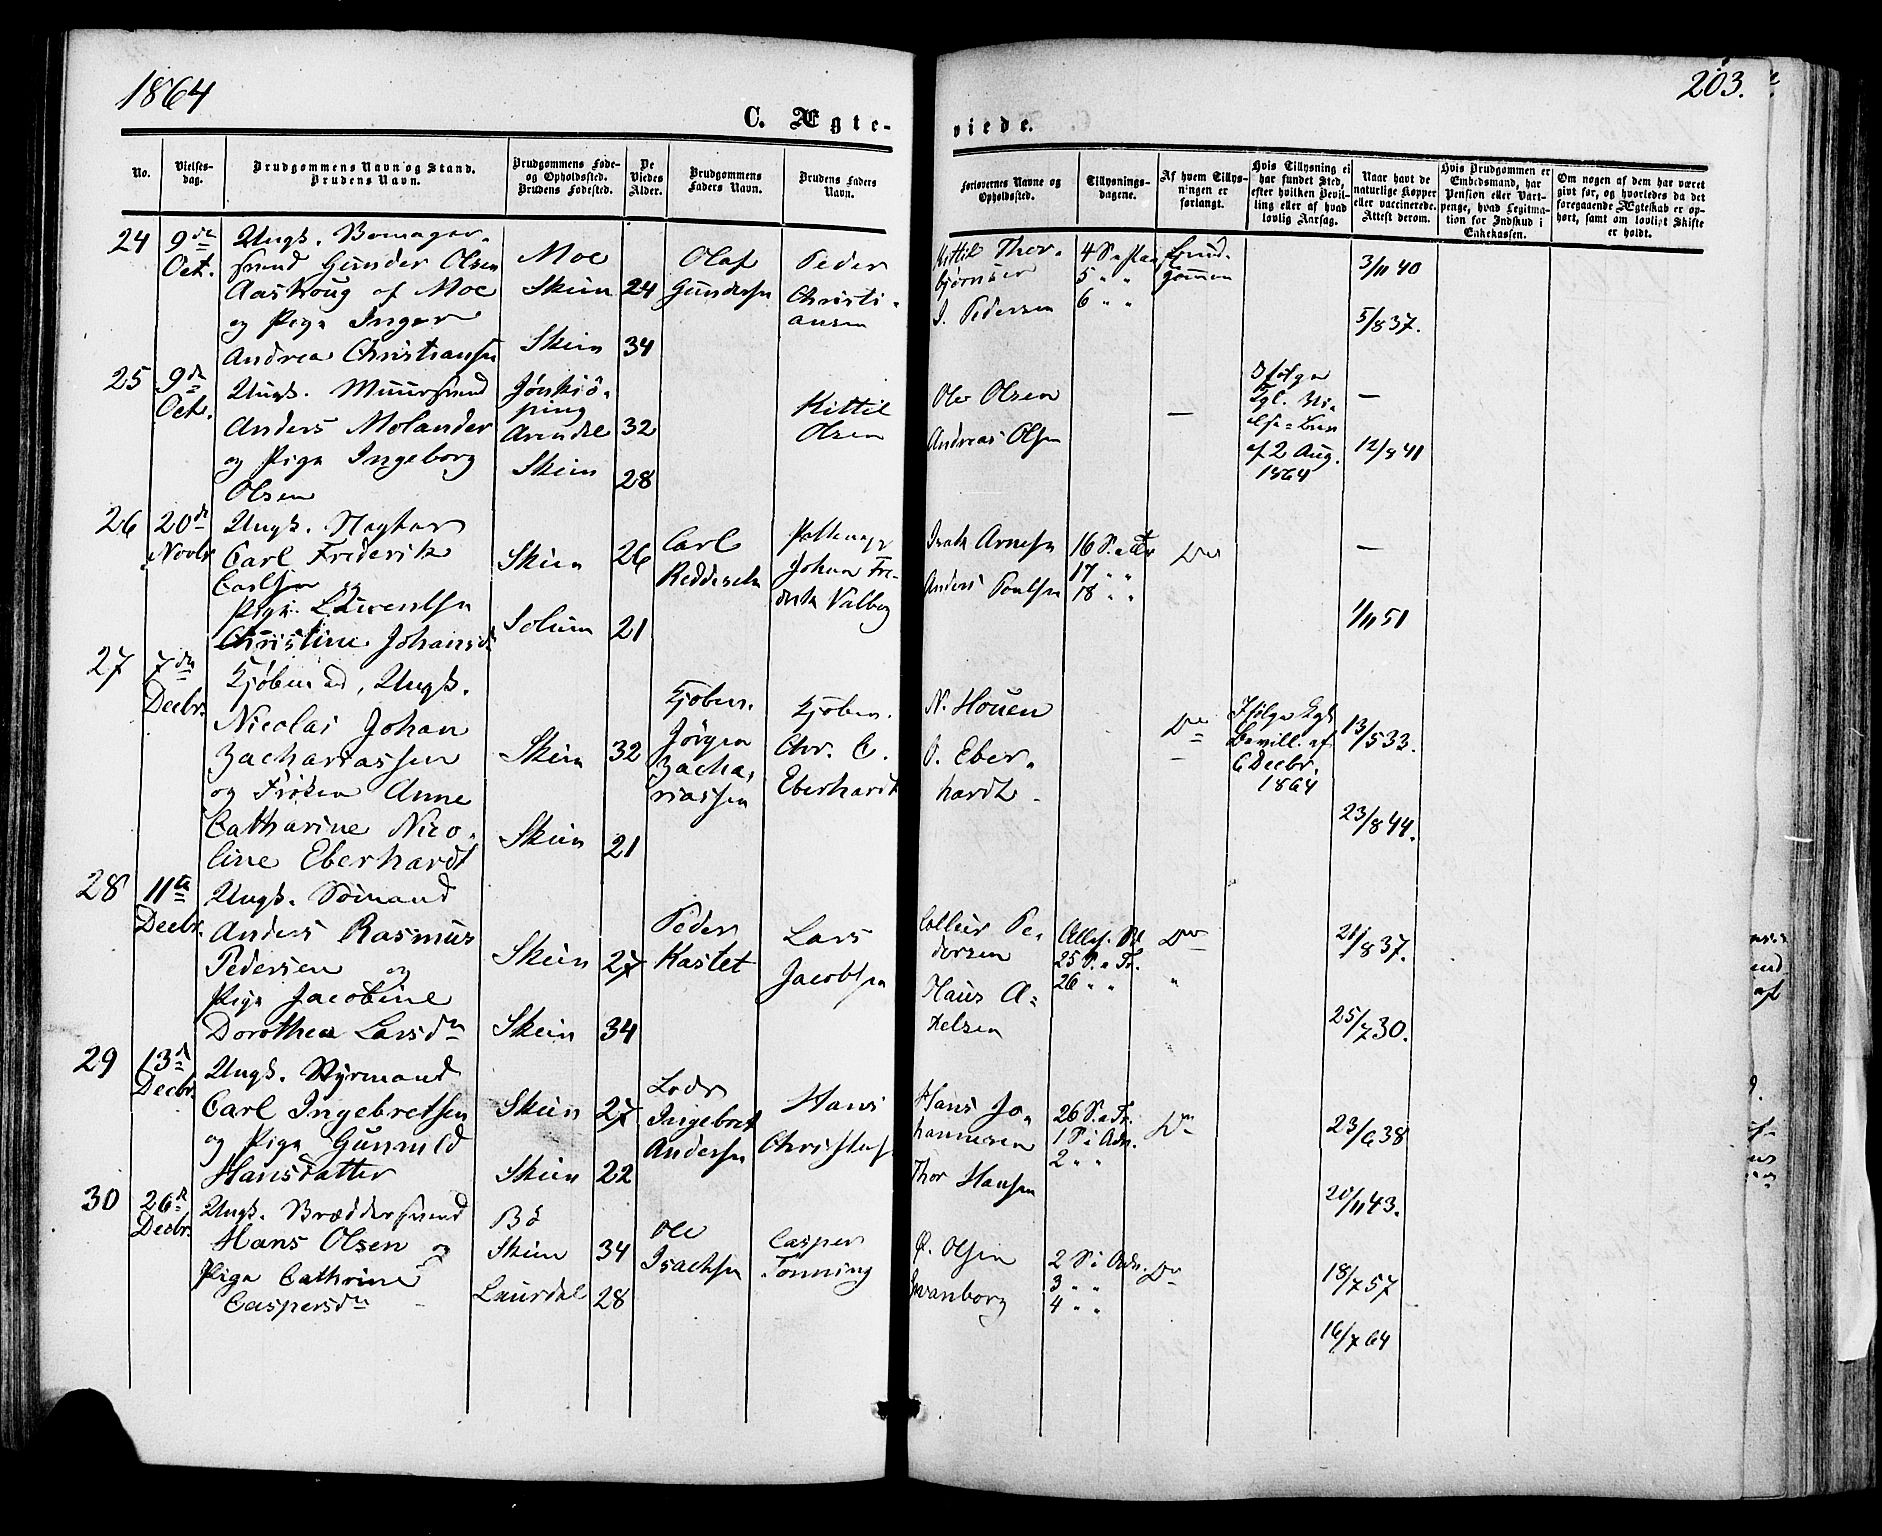 1864
203.
C. Ægte-
viede.
No.
Vielses-
dag.
Brudgommens Navn og Stand.
Brudens Navn.
Brudgommens Føde-
og Opholdssted.
Brudens Fødested.
De
Viedes
Alder.
Brudgommens
Faders Navn.
Brudens Faders
Navn.
Forlovernes Navne og
Opholdssted.
Tillysnings-
dagene.
Af hvem Tillys-
ningen er
forlangt.
Hvis Tillysning ei
har fundet Sted,
efter hvilken Bevil-
ling eller af hvad
lovlig Aarsag.
Naar havt de
naturlige Kopper
eller vaccinerede.
Attest derom.
Hvis Brudgommen er
Embedsmand, har
Pension eller Vart-
penge, hvad Legitima-
tion for Indskud i
Enkekassen.
Om nogen af dem har været
givt før, og hvorledes da det
foregaaende Ægteskab er op-
hørt, samt om lovligt Skifte
er holdt.
24
9de
Oct.
Ungk.
Gunder Olsen
af Moe
og Pige Inger
Andrea Christiansen
Moe
Skien 24
Skien 34
Olaf
Gundersen
Peder
Christi-
ansen
Kittil Thor-
bjørnsen
J. Pedersen
4 S.
5 " "
6 " "
Brud-
gommen
3/11 40
5/8 37.
25
9de
Oct.
Ungk. Muursvend
Anders Molander
og Pige Ingeborg
Olsen
Jönkiö-
ping
Arendal 32
Skien 28
Kittil
Olsen
Ole Olsen
Andreas Olsen
—
Ifølge
Kgl.
af 2 Aug.
1864
—
12/8 41
26
20de
Novbr.
Ungk. Slagter
Carl Frederik
Carlsen og
Pige Laurentse
Christine Johansd
Skien 26
Solum 21
Carl
Johan Fre-
derik Valberg
Isak Arnesen
Anders Poulsen
16 S. e Tr
17 " "
18 " "
Do
—
1/11 51
27
7de
Decbr.
Kjøbmand, Ungk.
Nicolai Johan
Zachariassen
og Frøken Anne
Catharine Nico-
line Eberhardt
Skien 32
Skien 21
Kjøbm.
Jørgen
Zacha-
riassen
Kjøbm.
Chr. C.
Eberhardt
N. Houen
Eber-
hardt
Do
—
Ifølge Kgl
Bevill. af
6 Decbr.
1864
13/5 33.
23/8 44.
28
11te
Decbr.
Ungk. Sømand
Anders Rasmus
Pedersen og
Pige Jacobine
Dorothea Larsdr
Skien 27
Skien 34
Peder
Kastet
Lars
Jacobsen
Colleur Pe-
dersen
Hans A-
xelsen
25 S. e Tr.
26 " "
Do
"
21/8 37.
25/7 30.
29
13de
Decbr.
Ungk. Styrmand
Carl Ingebretsen
og Pige Gunnild
Hansdatter
Skien 27
Skien 22
Lods
Ingebret
Andersen
Hans
Christens.
Hans Jo-
hannesen
Thor Hansen
26 S. e Tr.
1 S i Adv.
2 " "
Do
23/6 38
20/11 43.
30
26de
Decbr.
Ungk.
Hans Olsen og
Pige Cathrine
Caspersdr
Bø
Skien 34
Laurdal 28
Ole
Isachsen
Casper
Tonning
Ø. Olsen
Svanborg
2 S i Adv.
3 " "
4 " "
Do
18/7 57
16/7 64